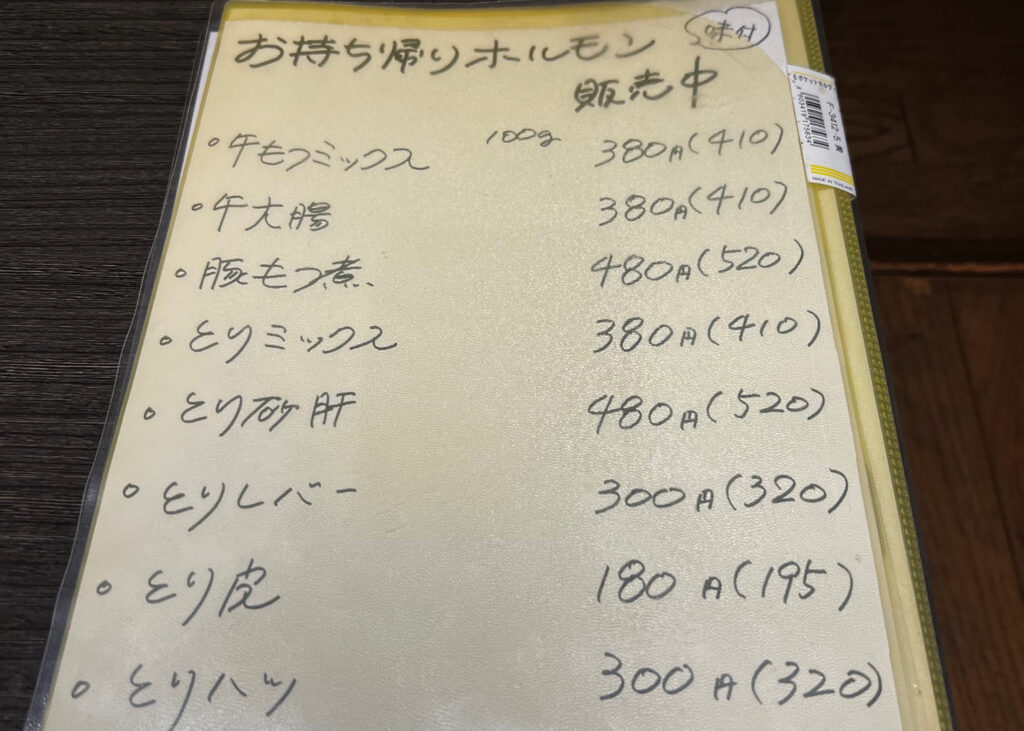 お持ち帰りホルモン
味付
販売中
・牛もつミックス 100g 380円(410)
・牛大腸 380円(410)
・豚もつ煮 480円(520)
・とりミックス 380円(410)
・とり砂肝 480円(520)
・とりレバー 300円(320)
・とり皮 180円(195)
・とりハツ 300円(320)
F-3412-5 黄
MADE IN THAILAND